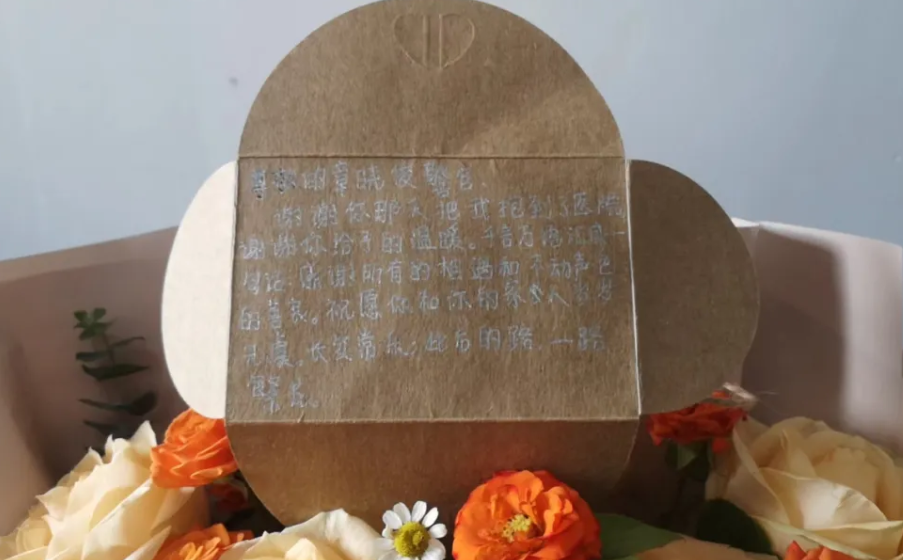 的章晓俊警官、
谢谢你那天把我抱到了医院
谢谢你给予的温暖。千言万语汇成一
句话:感谢所有的相遇和不动声色
的善良。祝愿你和你的家人岁岁
长安常乐;此后的路,一路
繁花。